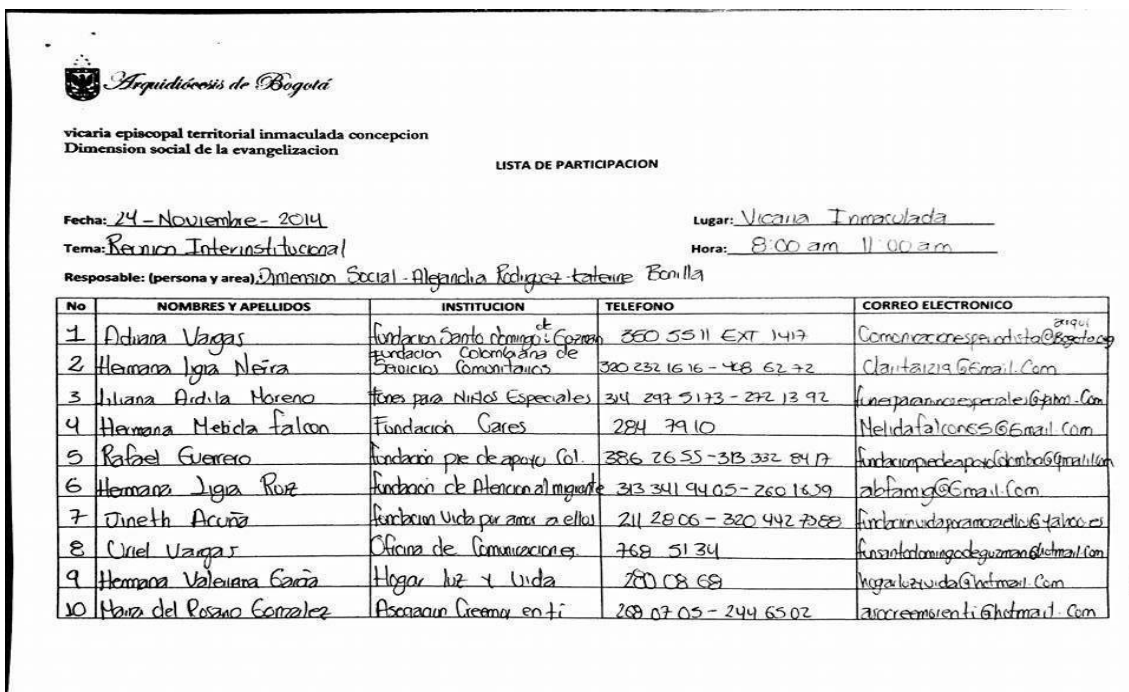 Arquidiócesis de Bogotá
vicaria episcopal territorial inmaculada concepcion
Dimension social de la evangelizacion
LISTA DE PARTICIPACION
Fecha: 24 - Noviembre - 2014 Lugar: Vicaria Inmaculada
Tema: Reunion Interinstitucional Hora: 8:00 am 11:00 am
Resposable: (persona y area) Dimension Social - Alejandra Rodriguez - Katerine Bonilla
No NOMBRES Y APELLIDOS INSTITUCION TELEFONO CORREO ELECTRONICO
1 Adriana Vargas fundacion Santo domingo de Guzman 350 55 11 EXT 1417
2 Hermana ligia Neira fundacion Colombiana de Servicios Comunitarios 320 232 16 16 - 62 72
3 liliana Ardila Moreno fones para Niños Especiales 314 297 5173 - 272 13 92
4 Hermana falcon Fundación Cares 284 79 10 Nelidafalcon55@Gmail.Com
5 Rafael Guerrero fundación pie de apoyo Col. 386 26 55 - 313 332 84 17
6 Hermana Ligia Ruiz fundación de Atencion al migrante 313 341 94 05 - 260 16 59 abfamig@Gmail.Com
7 Jineth Acuña fundacion Vida por amor a ellos 211 28 06 - 320 442 7388 fundacionvidaporamoraellos@yahoo.es
8 Uriel Vargas Oficina de Comunicaciones 768 51 34 funsantodomingodeguzman@hotmail.Com
9 Hermana Valeriana Garcia Hogar luz y Vida 280 08 68 hogarluzyvida@hotmail.Com
10 Maria del Rosario Gonzalez Asociacion Creemos en ti 268 07 05 - 244 65 02 asocreemosenti@hotmail.Com